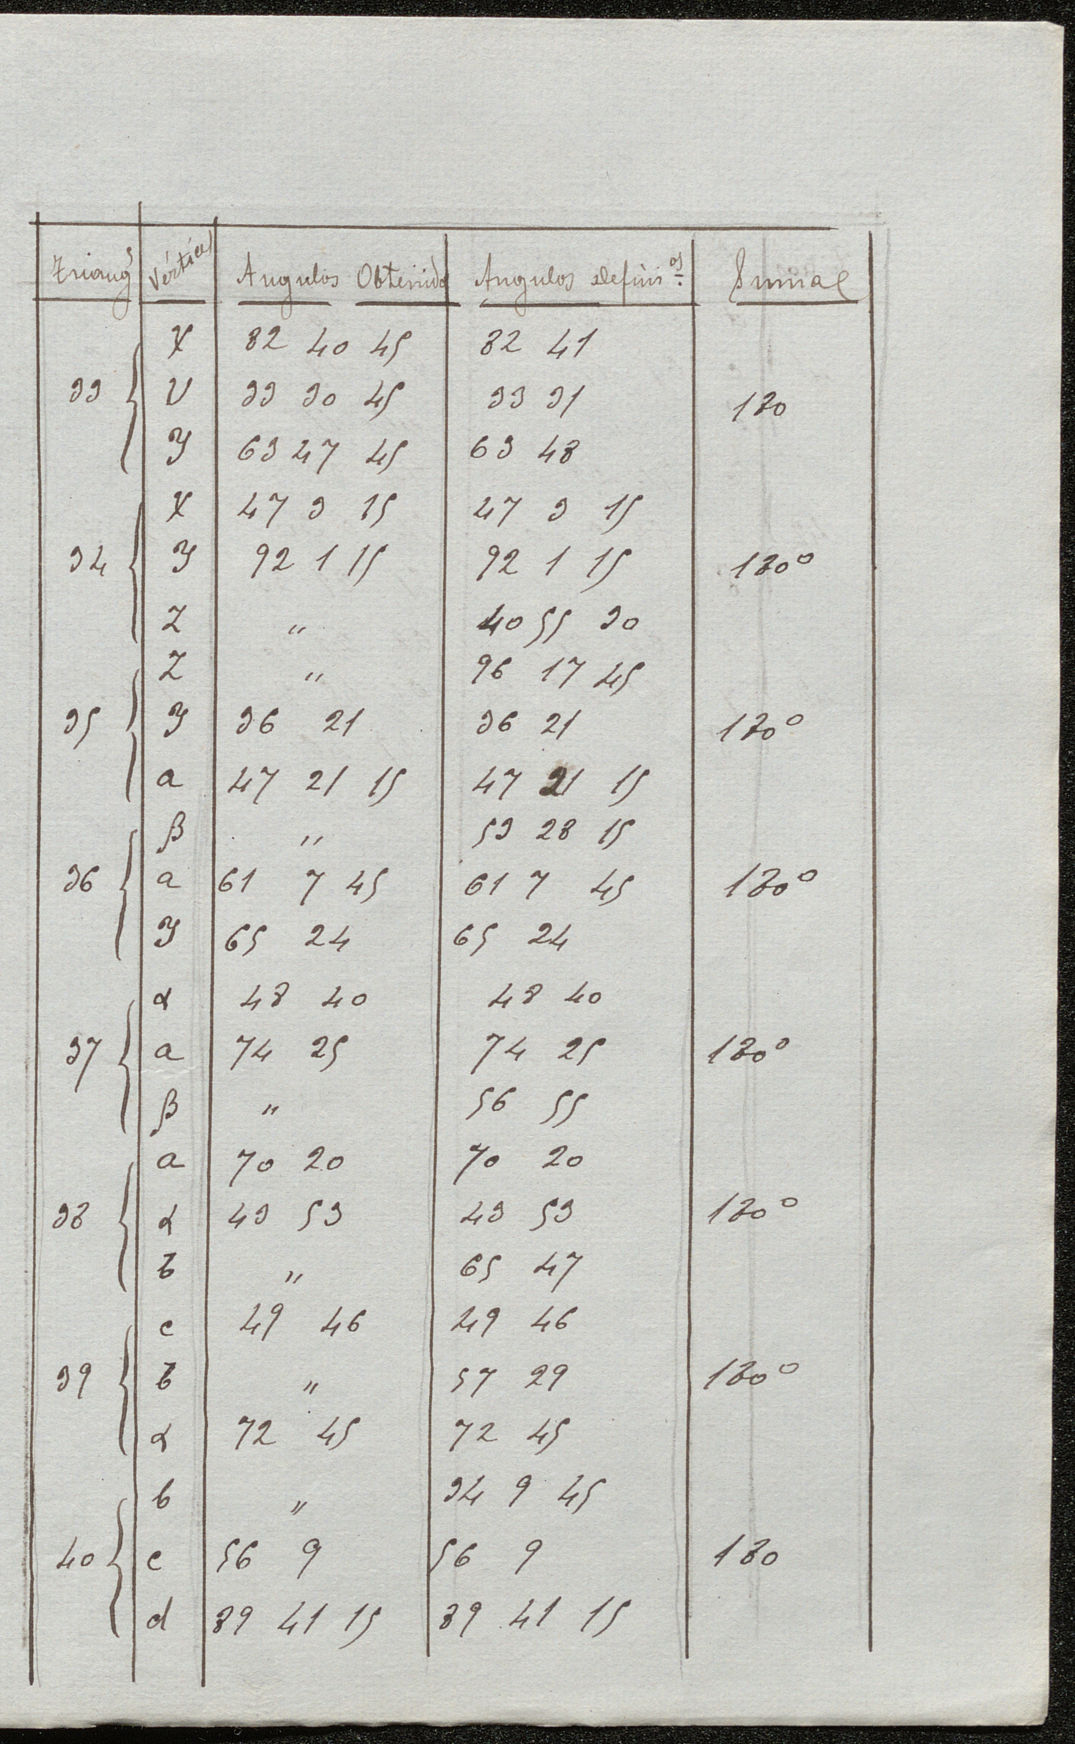 Triangs Vértices Angulos Obtenidos Angulos defini.os Sumas
X 82 40 45 82 41
33 V 33 30 45 33 31 180
Y 63 47 45 63 48
X 47 3 15 47 3 15
34 Y 92 1 15 92 1 15 180°
Z " 40 55 30
Z " 96 17 45
35 Y 36 21 36 21 180°
a 47 21 15 47 21 15
β " 53 28 15
36 a 61 7 45 61 7 45 180°
Y 65 24 65 24
α 48 40 48 40
37 a 74 25 74 25 180°
β " 56 55
a 70 20 70 20
38 α 43 53 43 53 180°
b " 65 47
c 49 46 49 46
39 b " 57 29 180°
α 72 45 72 45
b " 34 9 45
40 c 56 9 56 9 180
d 89 41 15 89 41 15